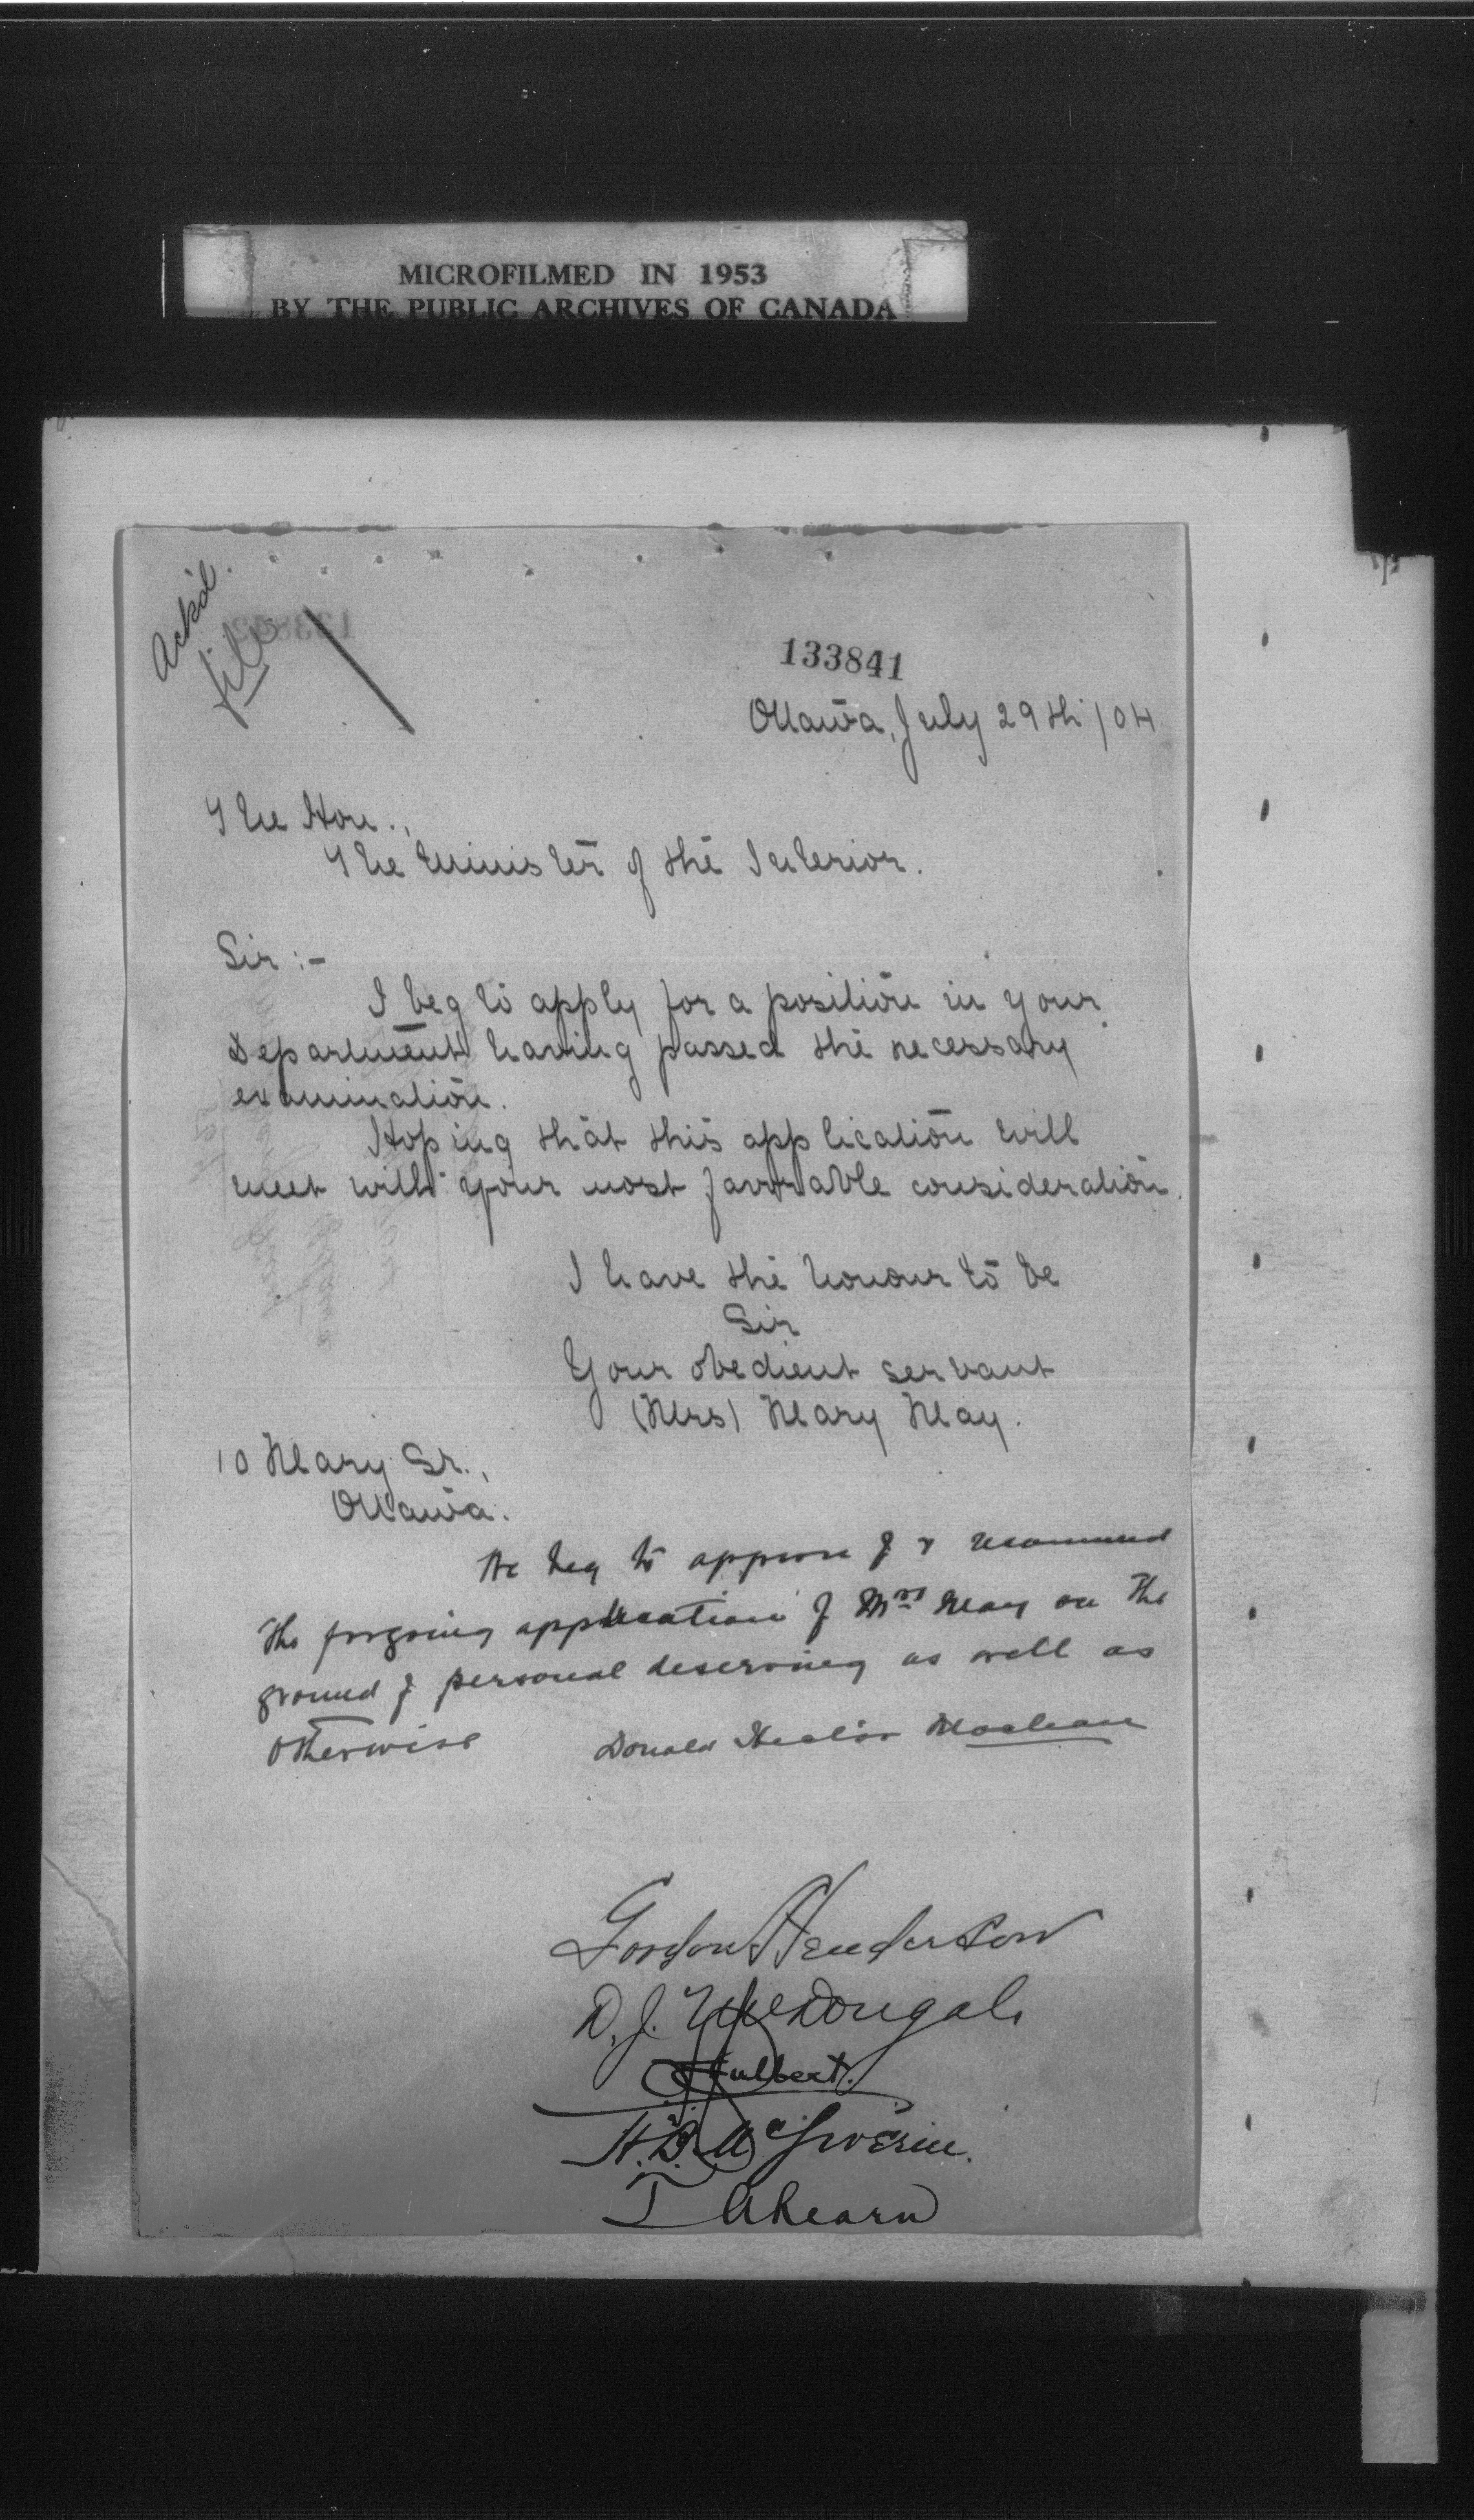 MICROFILMED IN 1953
BY THE PUBLIC ARCHIVES OF CANADA
Ack'd.
file
133841
Ottawa, July 29th /04
The Hon.,
The Minister of the Interior.
Sir :-
I beg to apply for a position in your
Department having passed the necessary
examination.
Hoping that this application will
meet with your most favorable consideration.
I have the honour to be
Sir
Your obedient servant
(Mrs) Mary May.
10 Mary St.,
Ottawa.
We beg to approve of & recommend
the forgoing application of Mrs May on the
ground of personal deserving as well as
otherwise
Donald Hector Maclean
Gordon Henderson
D. J. McDougal
Hulbert.
H. B. McGiverin.
T Ahearn